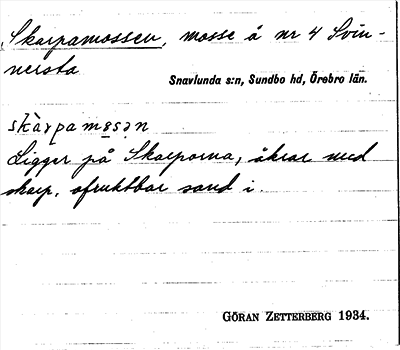 Skarpamossen, mosse å nr 4 Svin-
nersta
Snavlunda s:n, Sundbo hd, Örebro län.
skàrpamɷsən
Ligger på Skarporna, åkrar med
skarp, ofruktbar sand i.
GÖRAN ZETTERBERG 1934.